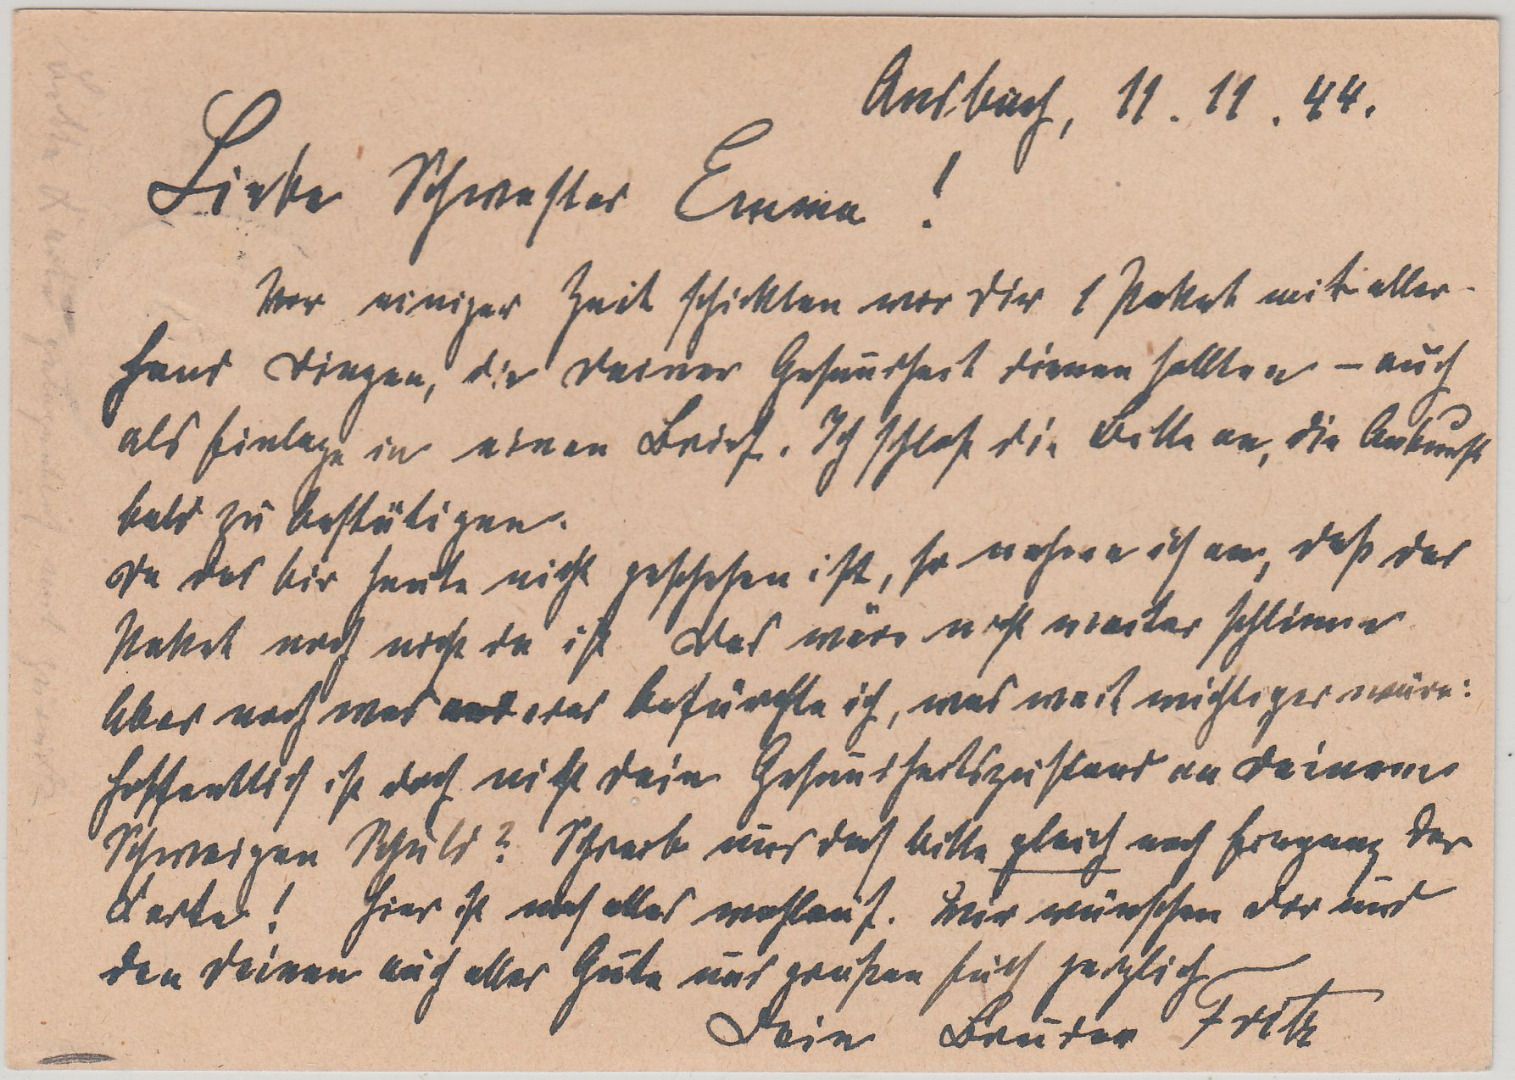 Ansbach, 11. 11. 44.
Liebe Schwester Emma!
Vor einiger Zeit schickten wir Dir 1 Paket mit aller-
hand Dingen, die Deiner Gesundheit dienen sollten – auch
als Einlage in einen Brief. Ich schloß die Bitte an, die Ankunft
bald zu bestätigen.
Da das bis heute nicht geschehen ist, so nehme ich an, daß das
Paket noch nicht da ist. Das wäre nicht weiter schlimm
Aber noch was anderes befürchte ich, was weit wichtiger wäre:
Hoffentlich ist doch nicht dein Gesundheitszustand an Deinem
Schweigen Schuld? Schreib uns doch bitte gleich nach Empfang der
Karte! Hier ist noch alles wohlauf. Wir wünschen Dir und
den Deinen auch alles Gute und grüßen Euch herzlich
Dein Bruder Fritz